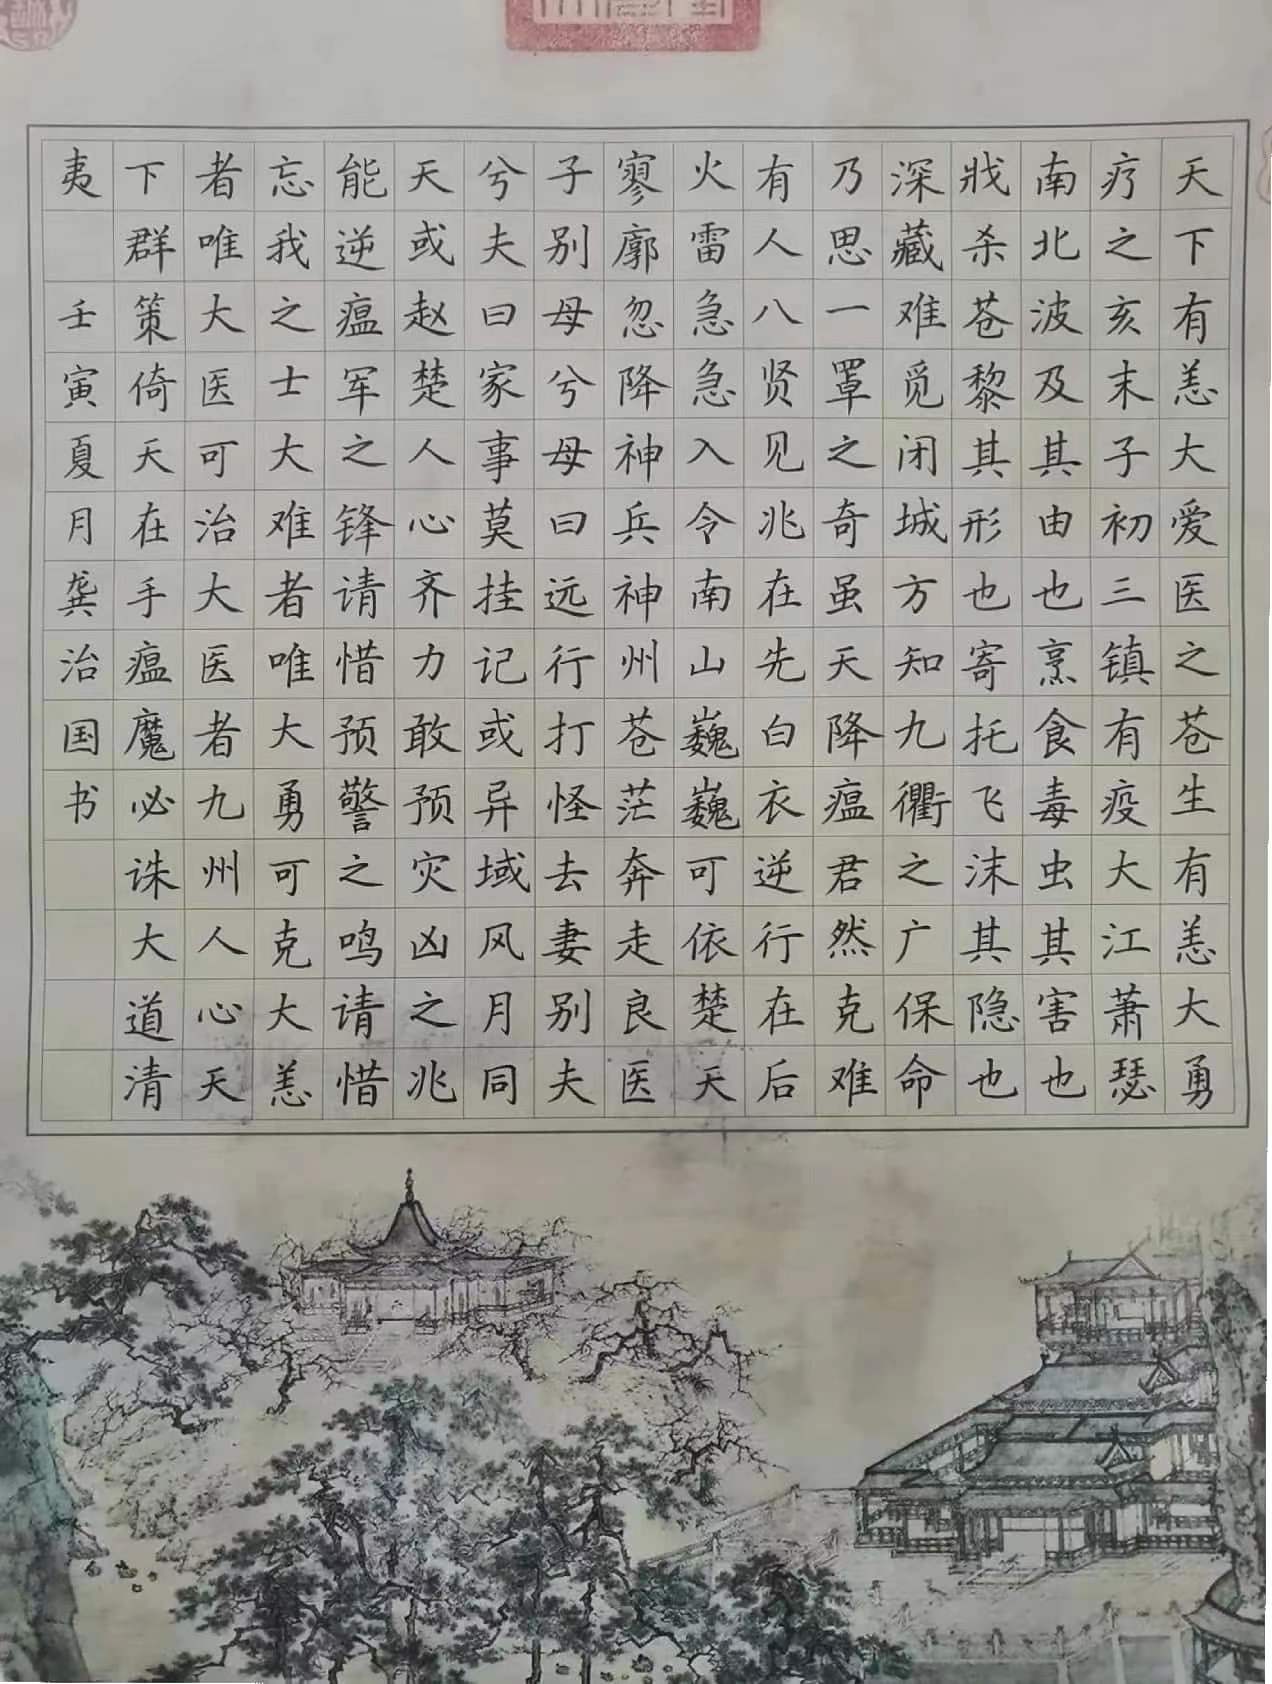 天下有恙大爱医之苍生有恙大勇
疗之亥末子初三镇有疫大江萧瑟
南北波及其由也烹食毒虫其害也
戕杀苍黎其形也寄托飞沫其隐也
深藏难觅闭城方知九衢之广保命
乃思一罩之奇虽天降瘟君然克难
有人八贤见兆在先白衣逆行在后
火雷急急入令南山巍巍可依楚天
寥廓忽降神兵神州苍茫奔走良医
子别母兮母曰远行打怪去妻别夫
兮夫曰家事莫挂记或异域风月同
天或赵楚人心齐力敢预灾凶之兆
能逆瘟军之锋请惜预警之鸣请惜
忘我之士大难者唯大勇可克大恙
者唯大医可治大医者九州人心天
下群策倚天在手瘟魔必诛大道清
夷 壬寅夏月龚治国书